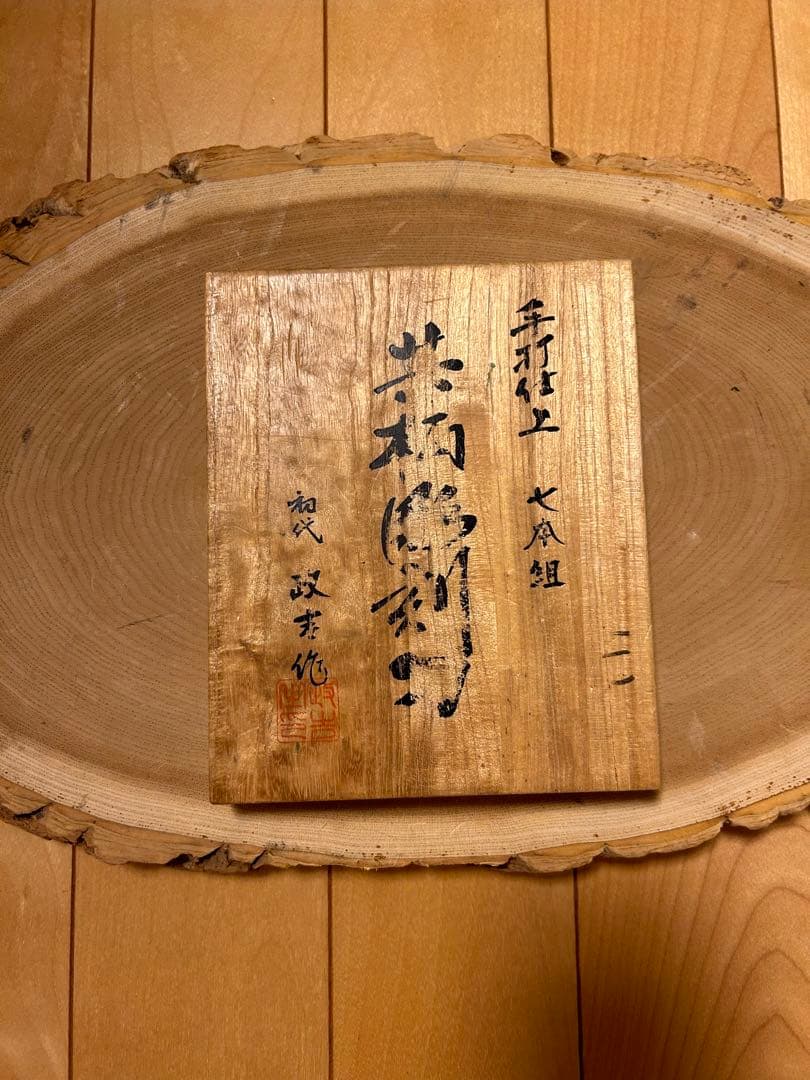 手打仕上 七本組
二
共柄彫刻刀
初代 政吉作